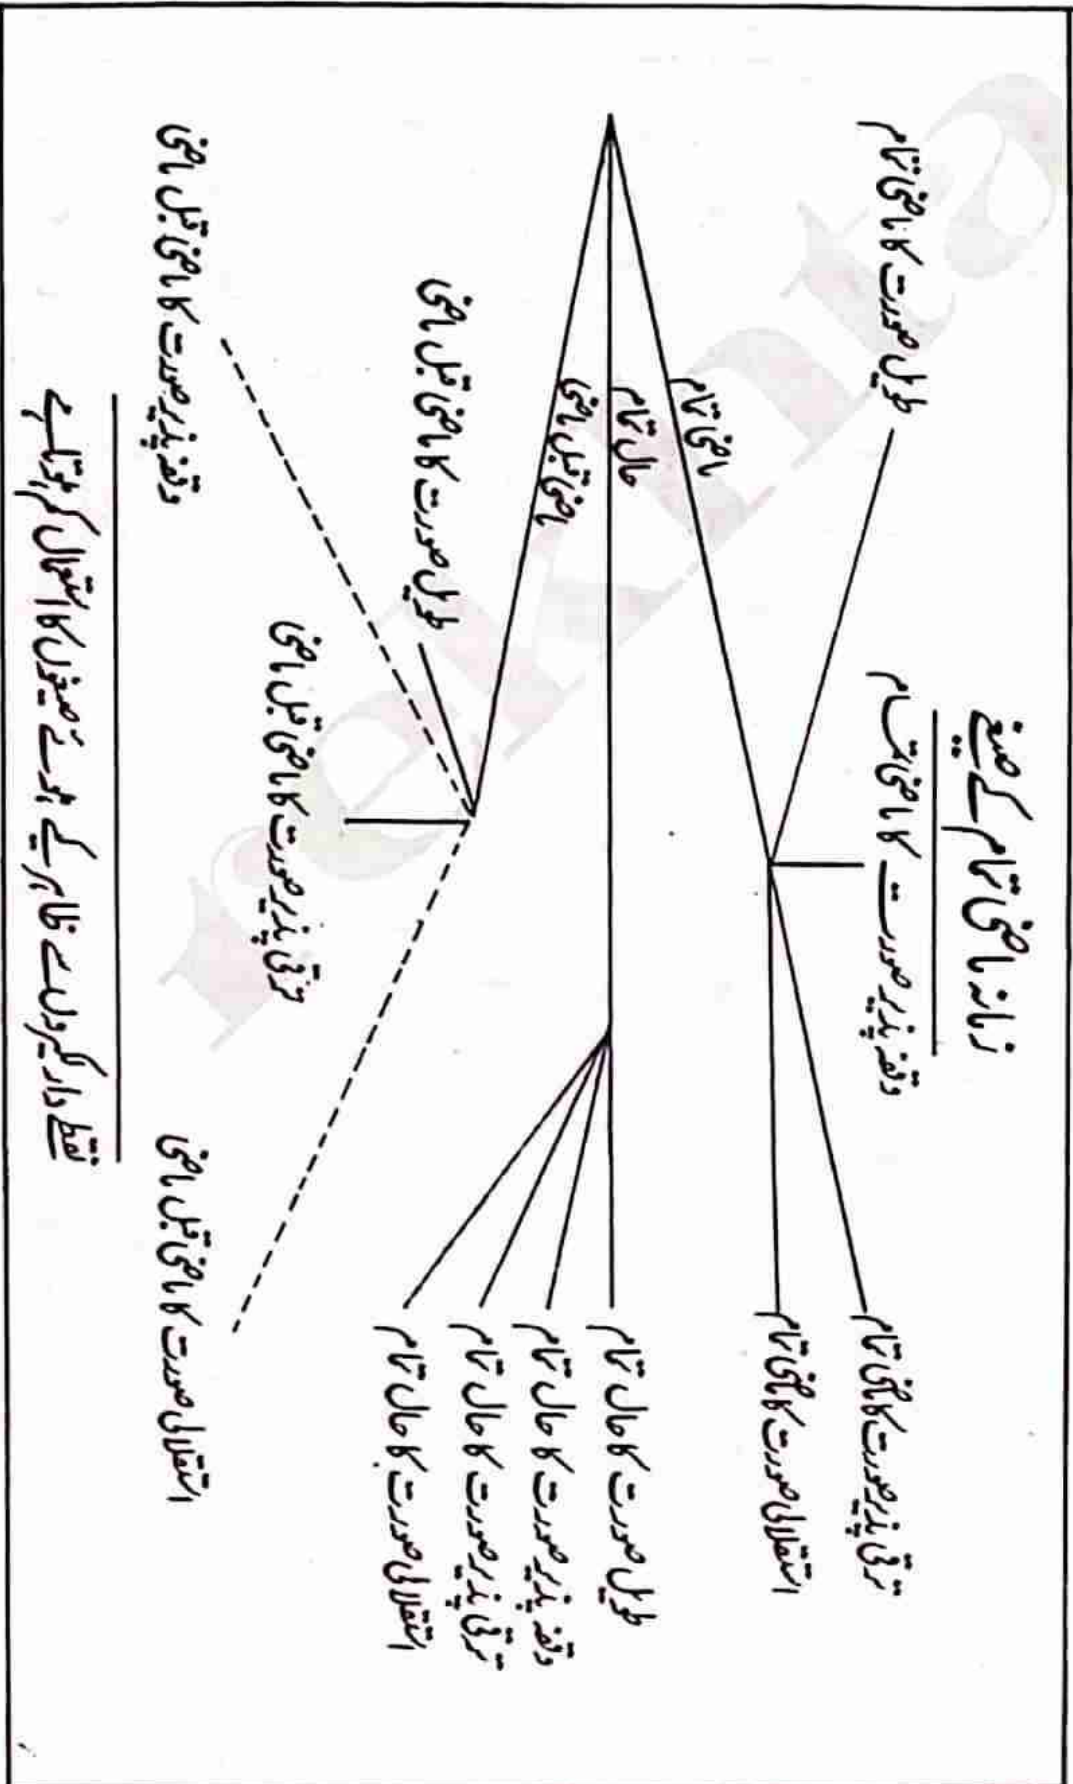 زمانہ ماضی تمام کے صیغے
طویل صورت کا ماضی تمام
وقفہ پذیر صورت کا ماضی تمام
ترقی پذیر صورت کا ماضی تمام
استقلالی صورت کا ماضی تمام
ماضی تمام
حال تمام
ماضی قبل ماضی
طویل صورت کا حال تمام
وقفہ پذیر صورت کا حال تمام
ترقی پذیر صورت کا حال تمام
استقلالی صورت کا حال تمام
طویل صورت کا ماضی قبل ماضی
ترقی پذیر صورت کا ماضی قبل ماضی
وقفہ پذیر صورت کا ماضی قبل ماضی
استقلالی صورت کا ماضی قبل ماضی
نقطے دار لکیروں سے ظاہر کیے ہوئے صیغوں کا استعمال کم ہوتا ہے
rekhta